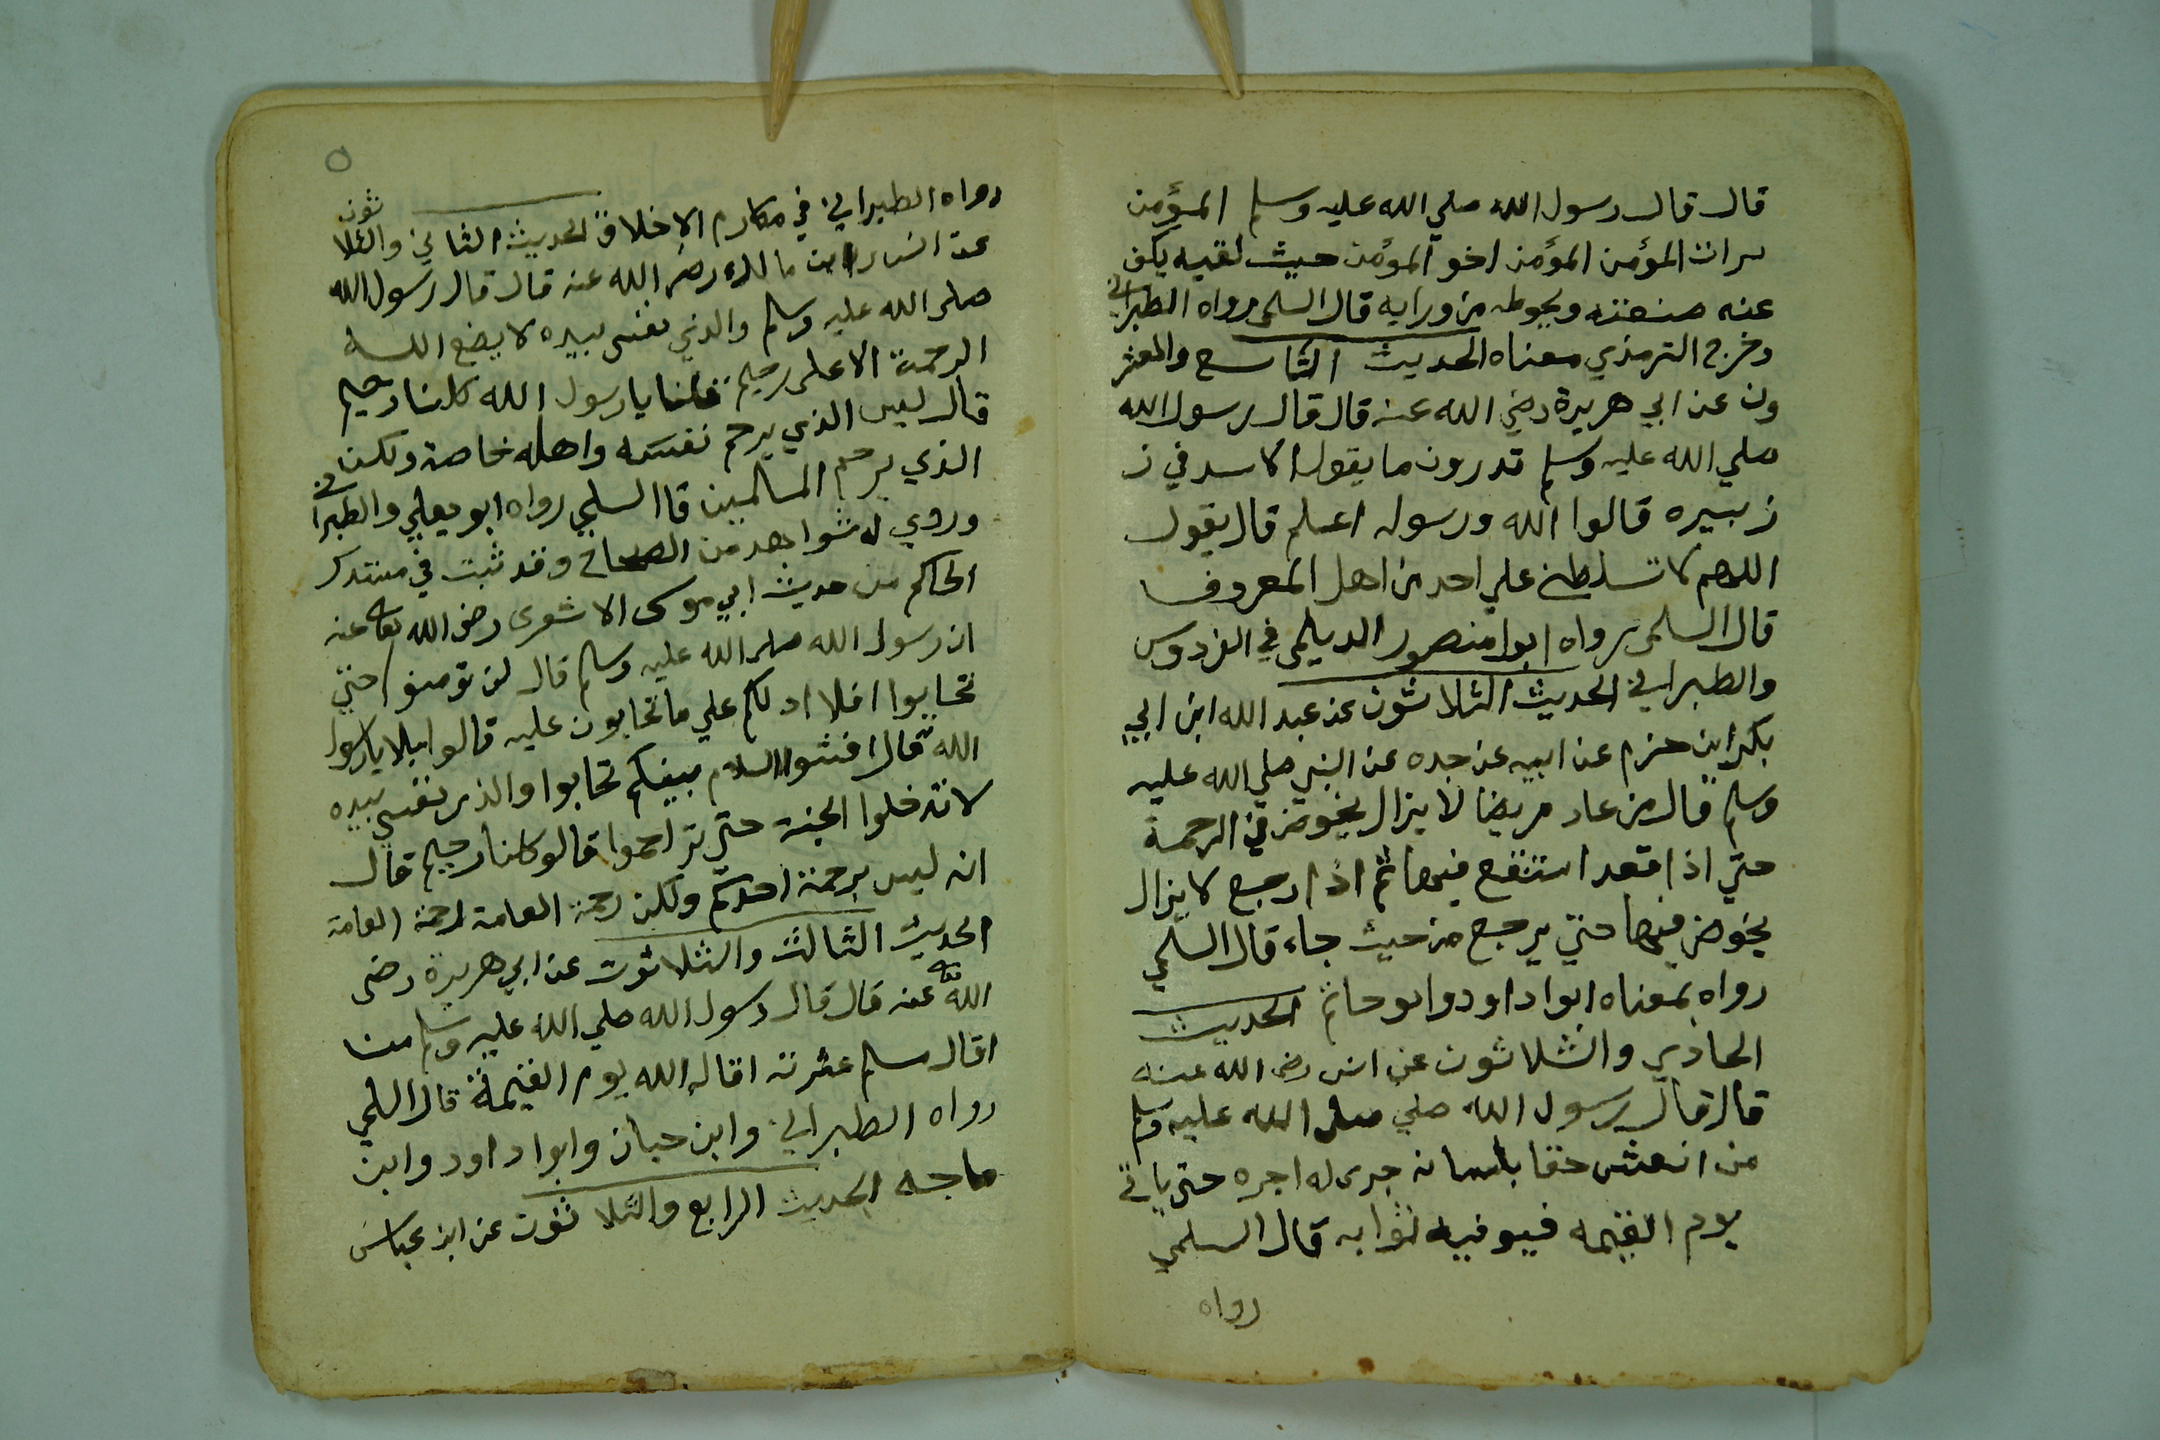 قال قال رسول الله صلي الله عليه وسلم المؤمن
مرات المؤمن المؤمن اخو المؤمن حيث لقيه يكف
عنه صنعته ويحوطه من ورايه قال السلمي رواه الطبراني
وخرج الترمذي معناه الحديث التاسع والعشر
ون عن ابي هريرة رضي الله عنه قال قال رسول الله
صلي الله عليه وسلم تدرون ما يقول الاسد في ز
زبيره قالوا الله ورسوله اعلم قال يقول
اللهم لا تسلطني علي احد من اهل المعروف
قال السلمي رواه ابوا منصور الديلمي في الفردوس
والطبراني الحديث الثلاثون عن عبد الله ابن ابي
بكر ابن حزم عن ابيه عن جده عن النبي صلي الله عليه
وسلم قال من عاد مريضا لا يزال يخوض في الرحمة
حتي اذا قعد استنقع فيها ثم اذا رجع لا يزال
يخوض فيها حتي يرجع من حيث جاء قال السلمي
رواه بمعناه ابوا داود وابو حاتم الحديث
الحادي والثلاثون عن انس رضي الله عنه
قال قال رسول الله صلي صلي الله عليه وسلم
من انعش حقا بلسانه جرى له اجره حتي ياتي
يوم القيمه فيوفيه ثوابه قال السلمي
رواه
٥
رواه الطبراني في مكارم الاخلاق الحديث الثاني والثلاثون
عن انس ابن مالك رضي الله عنه قال قال رسول الله
صلي الله عليه وسلم والذي نفسي بيده لا يضع الله
الرحمة الا على رحيم قلنا يا رسول الله كلنا رحيم
قال ليس الذي يرحم نفسه واهله خاصة ولكن
الذي يرحم المسلمين قا السلمي رواه ابو يعلي والطبراني
وروي له شواهد من الصحاح وقد ثبت في مستدرك
الحاكم من حديث ابي موسى الاشعري رضي الله تعالى عنه
ان رسول الله صلي الله عليه وسلم قال لن تومنوا حتي
تحابوا افلا ادلكم علي ما تحابون عليه قالوا بلا يا رسول
الله قال افشوا السلام بينكم تحابوا والذي نفسي بيده
لا تدخلوا الجنة حتي تراحموا قالو كلنا رحيم قال
انه ليس برحمة احدكم ولكن رحمة العامة رحمة العامة
الحديث الثالث والثلاثون عن ابي هريرة رضي
الله عنه قال قال رسول الله صلي الله عليه وسلم من
اقال مسلم عثرته اقاله الله يوم القيمة قال السلمي
رواه الطبراني وابن حبان وابوا داود وابن
ماجه الحديث الرابع والثلاثون عن ابن عباس